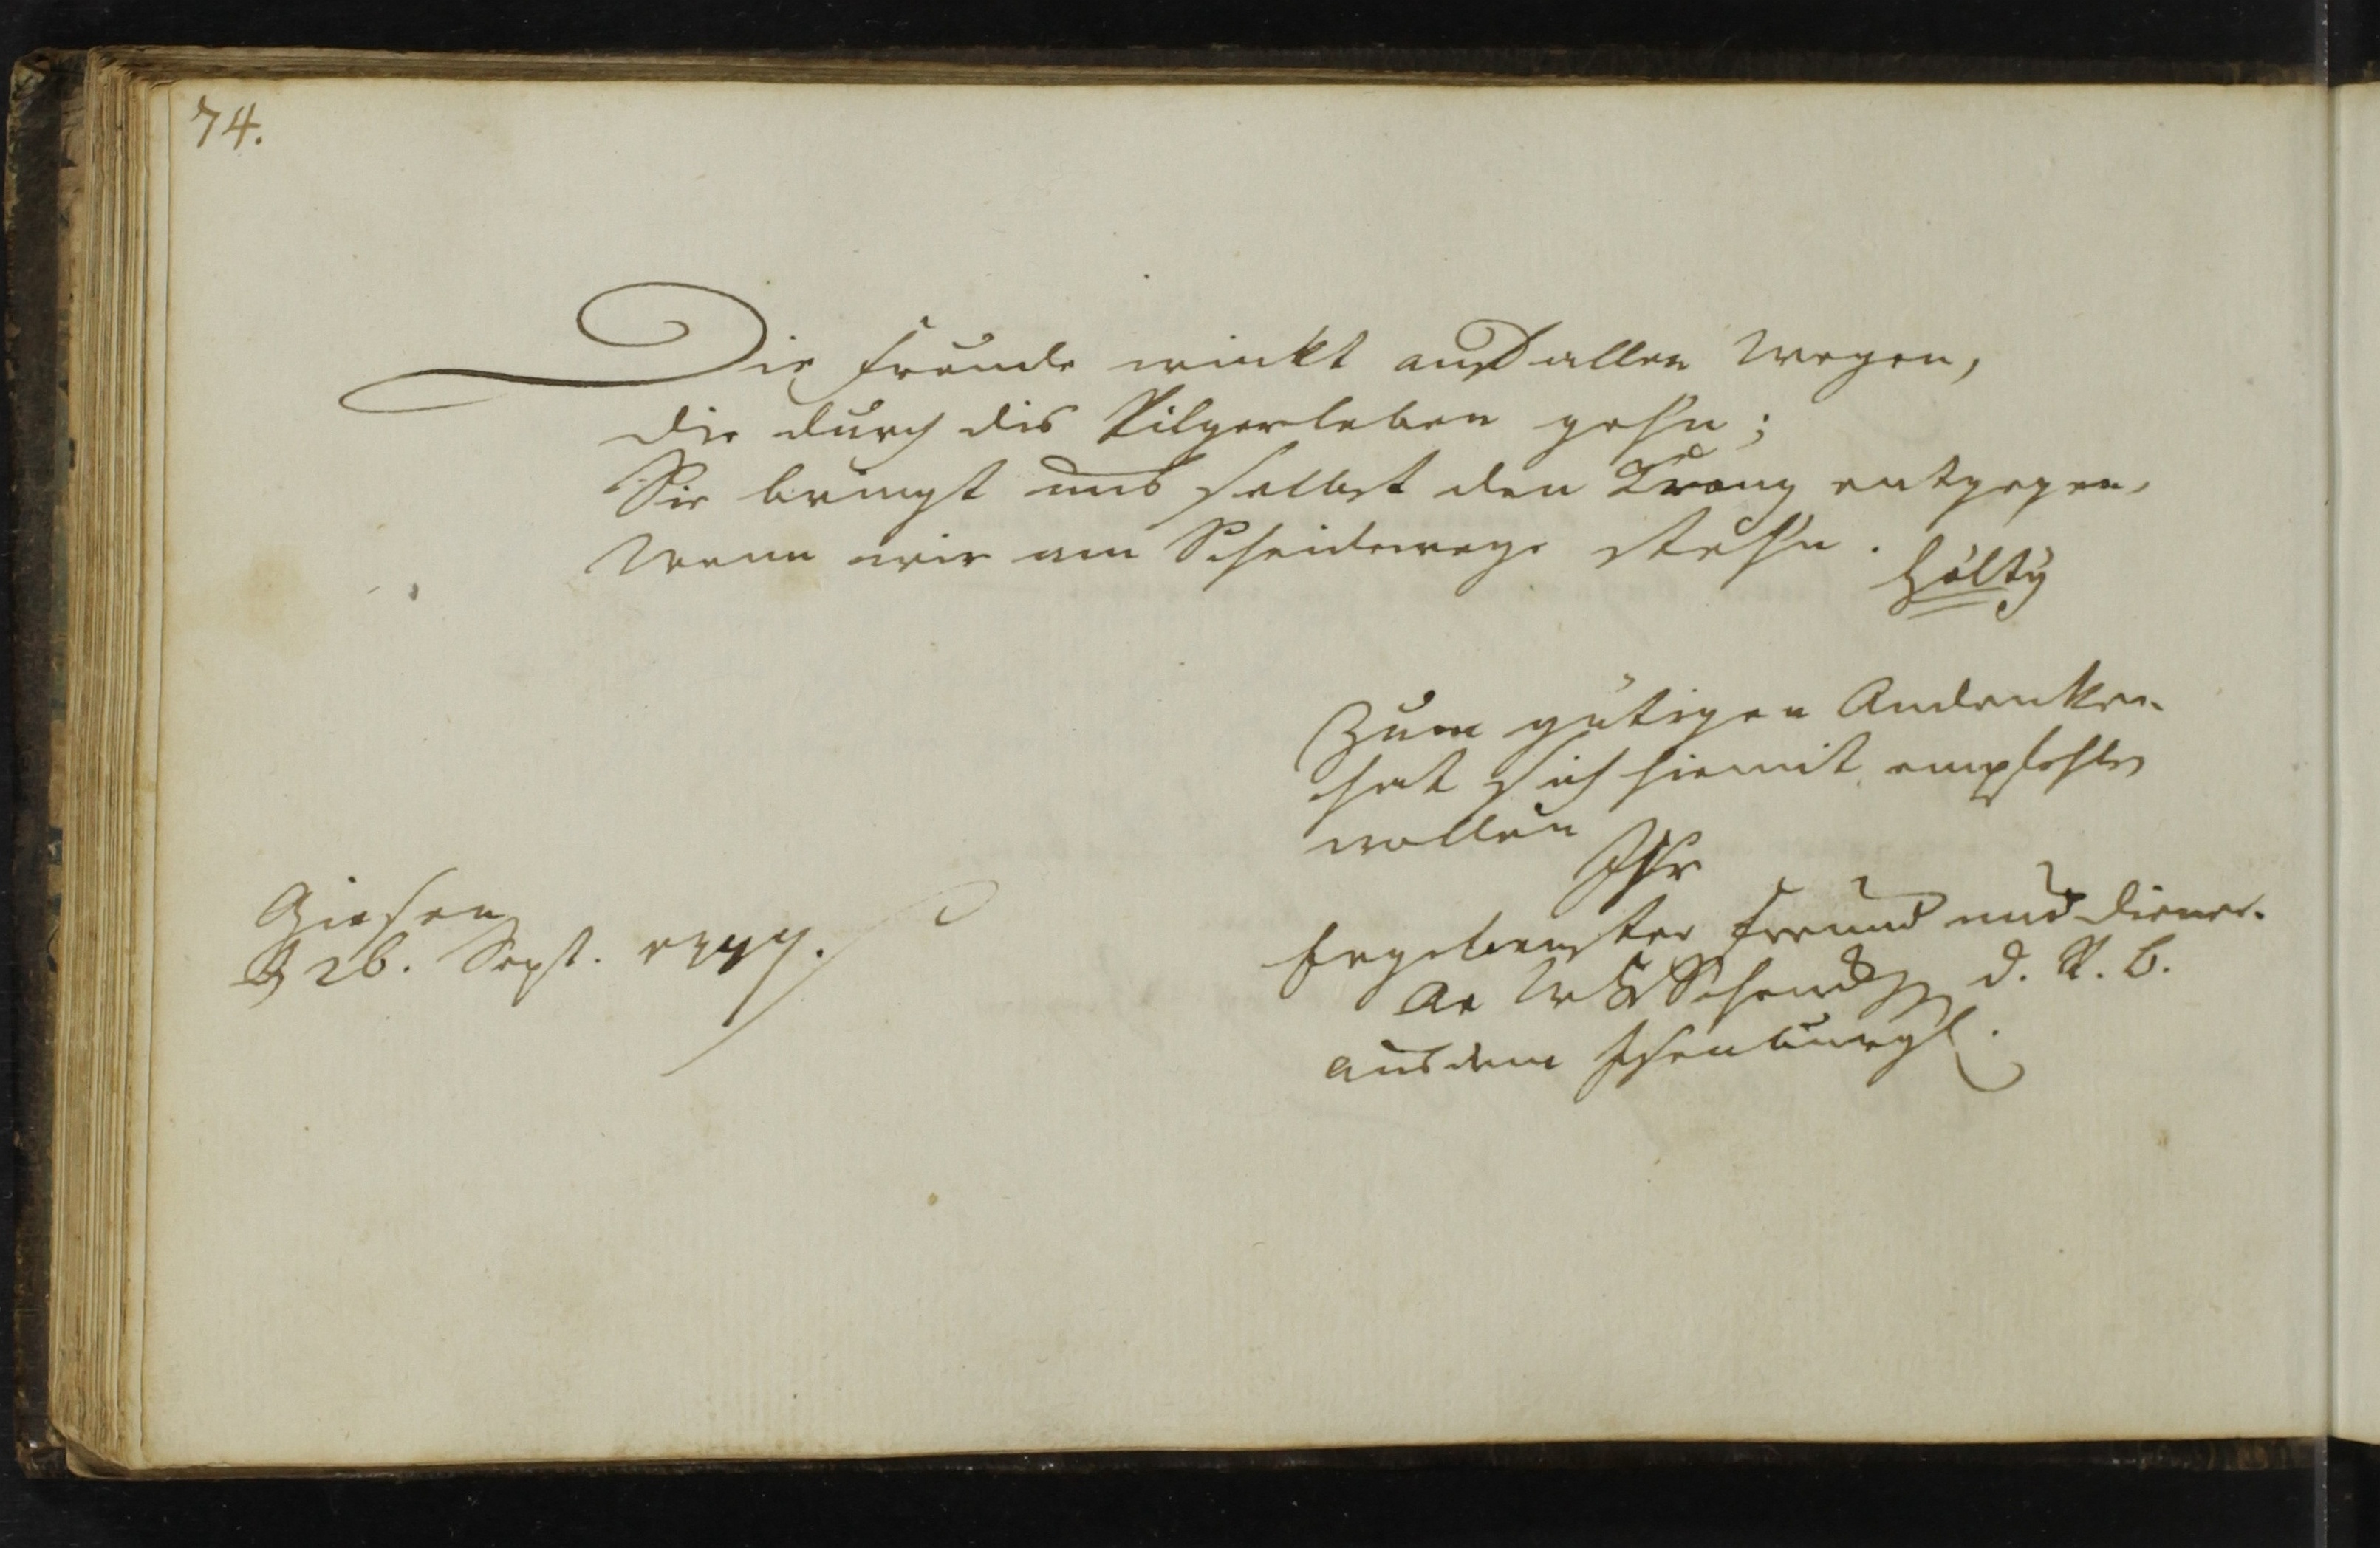 74.
Die Freude winkt auf allen Wegen,
die durch dis Pilgerleben gehn;
Sie bringt uns selbst den Kranz entgegen,
Wenn wir am Scheidewege stehn.
Hölty
Zum gütigen Andenken
hat sich hiemit empfehlen
wollen
Ihr
Ergebenster Freund und Diener.
d. R. B.
aus dem Isenburgl.
Giesen
d 26. Sept.